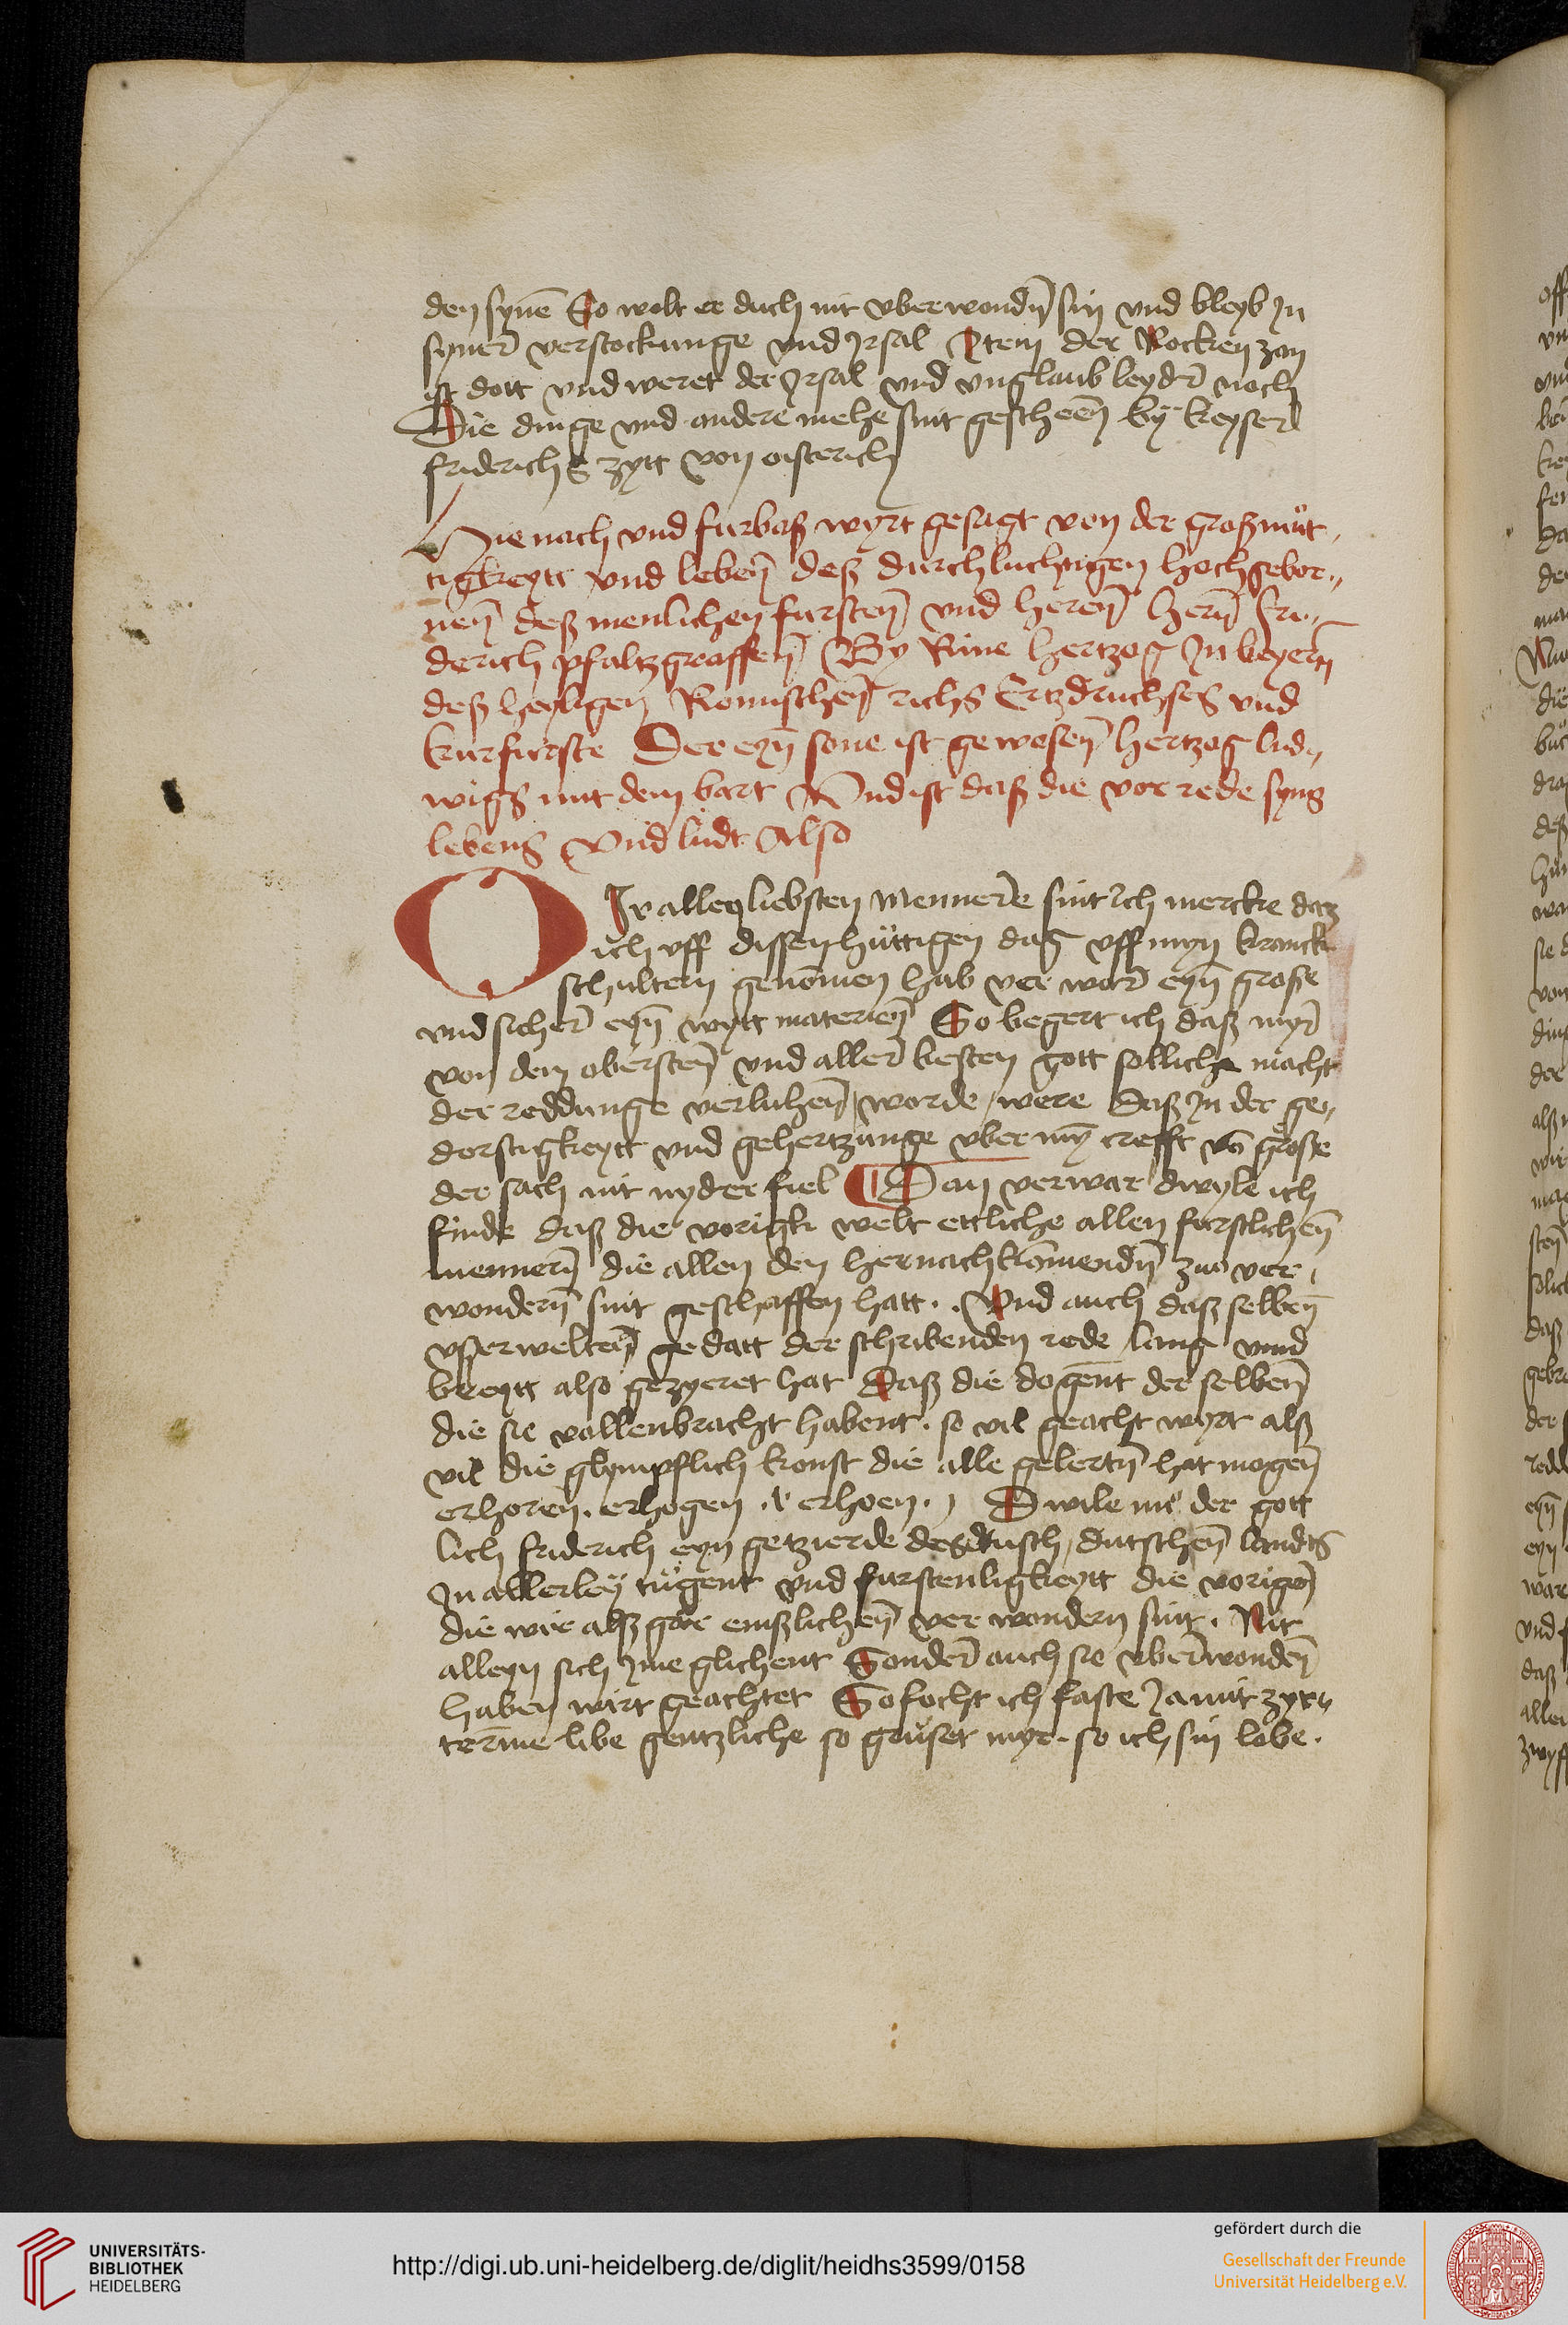 den synē So wolt er doch nit vberwondn̄ sin vnd bleyb Jn
syner verstockunge vnd Jrsal Jtem der Rocken zan
ist dott vnd weret der Jrsal vnd vnglaub leyder noch
Die dinge vnd andere mehe sint gescheen̄ by keyser
friderichs zytt von oisterich
Hie nach vnd furbaß wyrt gesagt von der großmüt„
tigkeytt vnd leben̄ deß durchluchtigen hochgebor„
nen̄ deß menlichen fursten̄ vnd heren̄ hern̄ fri„
derich pfaltzgraffen̄ By Rine hertzog Jn beyern̄
deß heyligen Romischen̄ richs Ertzdruchses vnd
kurfurste Der eyn̄ sone ist gewesen̄ hertzog lud„
wigs mit dem bart Vnd ist daß die vor rede syns
lebens Vnd ludt Also
O Jr aller liebsten Mennere sint Jch mercke daz
ich vff dissen hüttigen dag vff myn kranck
schultern genōmen hab ver war eyn̄ große
vnd sicher eyn̄ wytt materien̄ So begert ich daß myr
von dem obersten̄ vnd aller besten gott solliche macht
der reddunge verluhen̄ worde / were daß Jn der ge„
dorstigkeytt vnd gehertzunge vber mȳ crefft vō große
der sach nit nyder fiel Dan verwar dwyle ich
finde daß die vorigk welt ettliche allen furstlichen̄
mennern̄ die allen den hernachkōmendn̄ zuo ver„
wondern̄ sint geschaffen hatt. Vnd auch daß selben̄
vsserwelten̄ gedatt der schribenden rede lang vnnd
breytt also gezyeret hat Daß die dogent der selben̄
die sie vollenbracht habent. so vil geacht wyrt alß
vil die glympflich konst die alle gelertn̄ hat mogen̄
erhoren. erhogen. v̄ erhoen. Dwile nu der gott
lich friderich eyn getzierde des dutsch / dutschen̄ landts
Jn allerley tügent vnd furstenligkeytt die vorigen̄
die wir alß gar enßlichen̄ ver wondern sint. Nit
alleyn sich Jme glichent Sonder auch sie vberwonden̄
haben wirt geachtet So focht ich faste Ja mit zyt„
terme libe gentzliche so grüset myr. so ich sin lobe.
UNIVERSITÄTS-
BIBLIOTHEK
HEIDELBERG
http://digi.ub.uni-heidelberg.de/diglit/heidhs3599/0158
gefördert durch die
Gesellschaft der Freunde
Universität Heidelberg e.V.